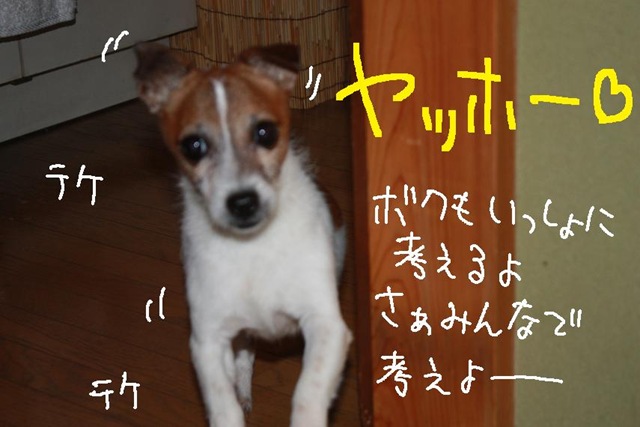 ヤッホー
ボクもいっしょに
考えるよ
さぁみんなで
考えよー
テケ
テケ